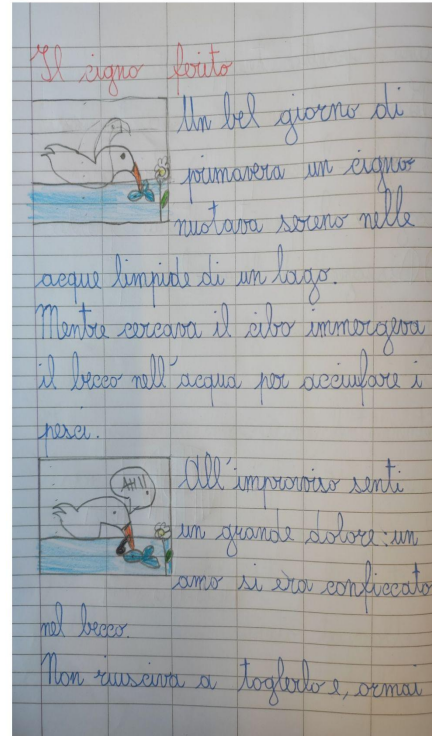 Il cigno ferito
Un bel giorno di
primavera un cigno
nuotava sereno nelle
acque limpide di un lago.
Mentre cercava il cibo immergeva
il becco nell'acqua per acciuffare i
pesci.
AH!!
All'improvviso sentì
un grande dolore: un
amo si era conficcato
nel becco.
Non riusciva a toglierlo e, ormai